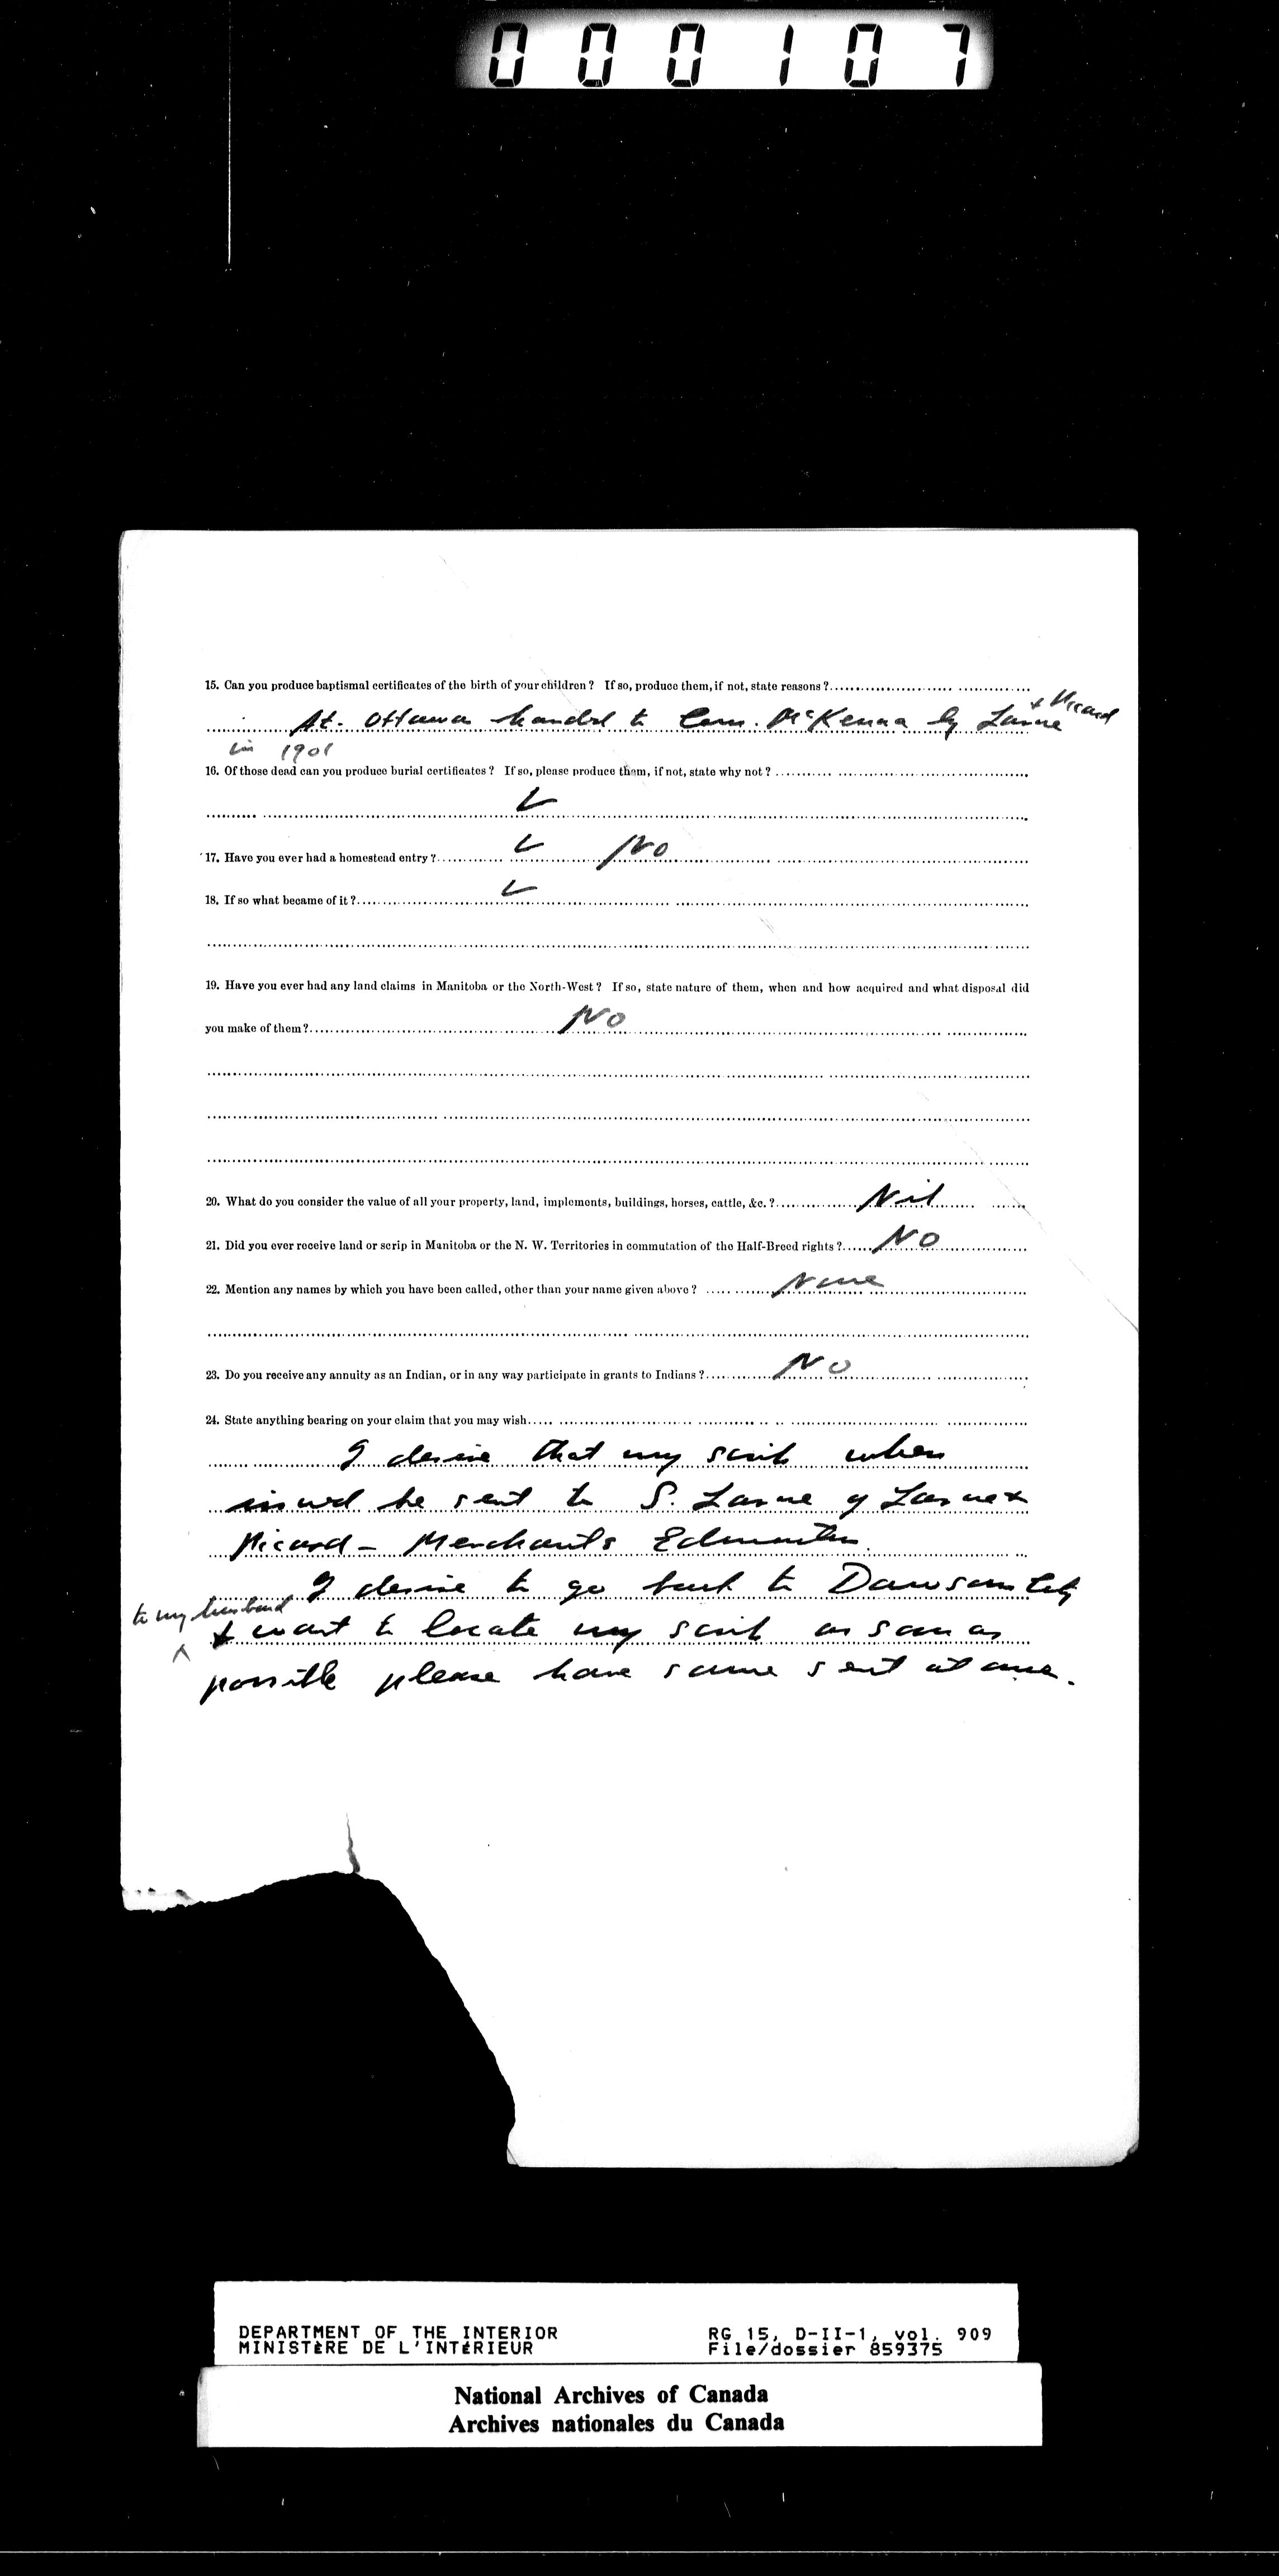 000107
15. Can you produce baptismal certificates of the birth of your children? If so, produce them, if not, state reasons?
+ Picard
At. Ottawa handed to Com. McKenna by Larue
in 1901
16. Of those dead can you produce burial certificates? If so, please produce them, if not, state why not?
17. Have you ever had a homestead entry? No
18. If so what became of it?
19. Have you ever had any land claims in Manitoba or the North-West? If so, state nature of them, when and how acquired and what disposal did
you make of them? No
20. What do you consider the value of all your property, land, implements, buildings, horses, cattle, &c.? Nil
21. Did you ever receive land or scrip in Manitoba or the N. W. Territories in commutation of the Half-Breed rights? No
22. Mention any names by which you have been called, other than your name given above? None
23. Do you receive any annuity as an Indian, or in any way participate in grants to Indians? No
24. State anything bearing on your claim that you may wish
I desire that my scrip when
issued be sent to S. Larue of Larue +
Picard - Merchants Edmonton.
I desire to go back to Dawson City
to my husband
+ want to locate my scrip as soon as
possible please have same sent at once.
DEPARTMENT OF THE INTERIOR RG 15, D-II-1, vol. 909
MINISTÈRE DE L'INTÉRIEUR File/dossier 859375
National Archives of Canada
Archives nationales du Canada